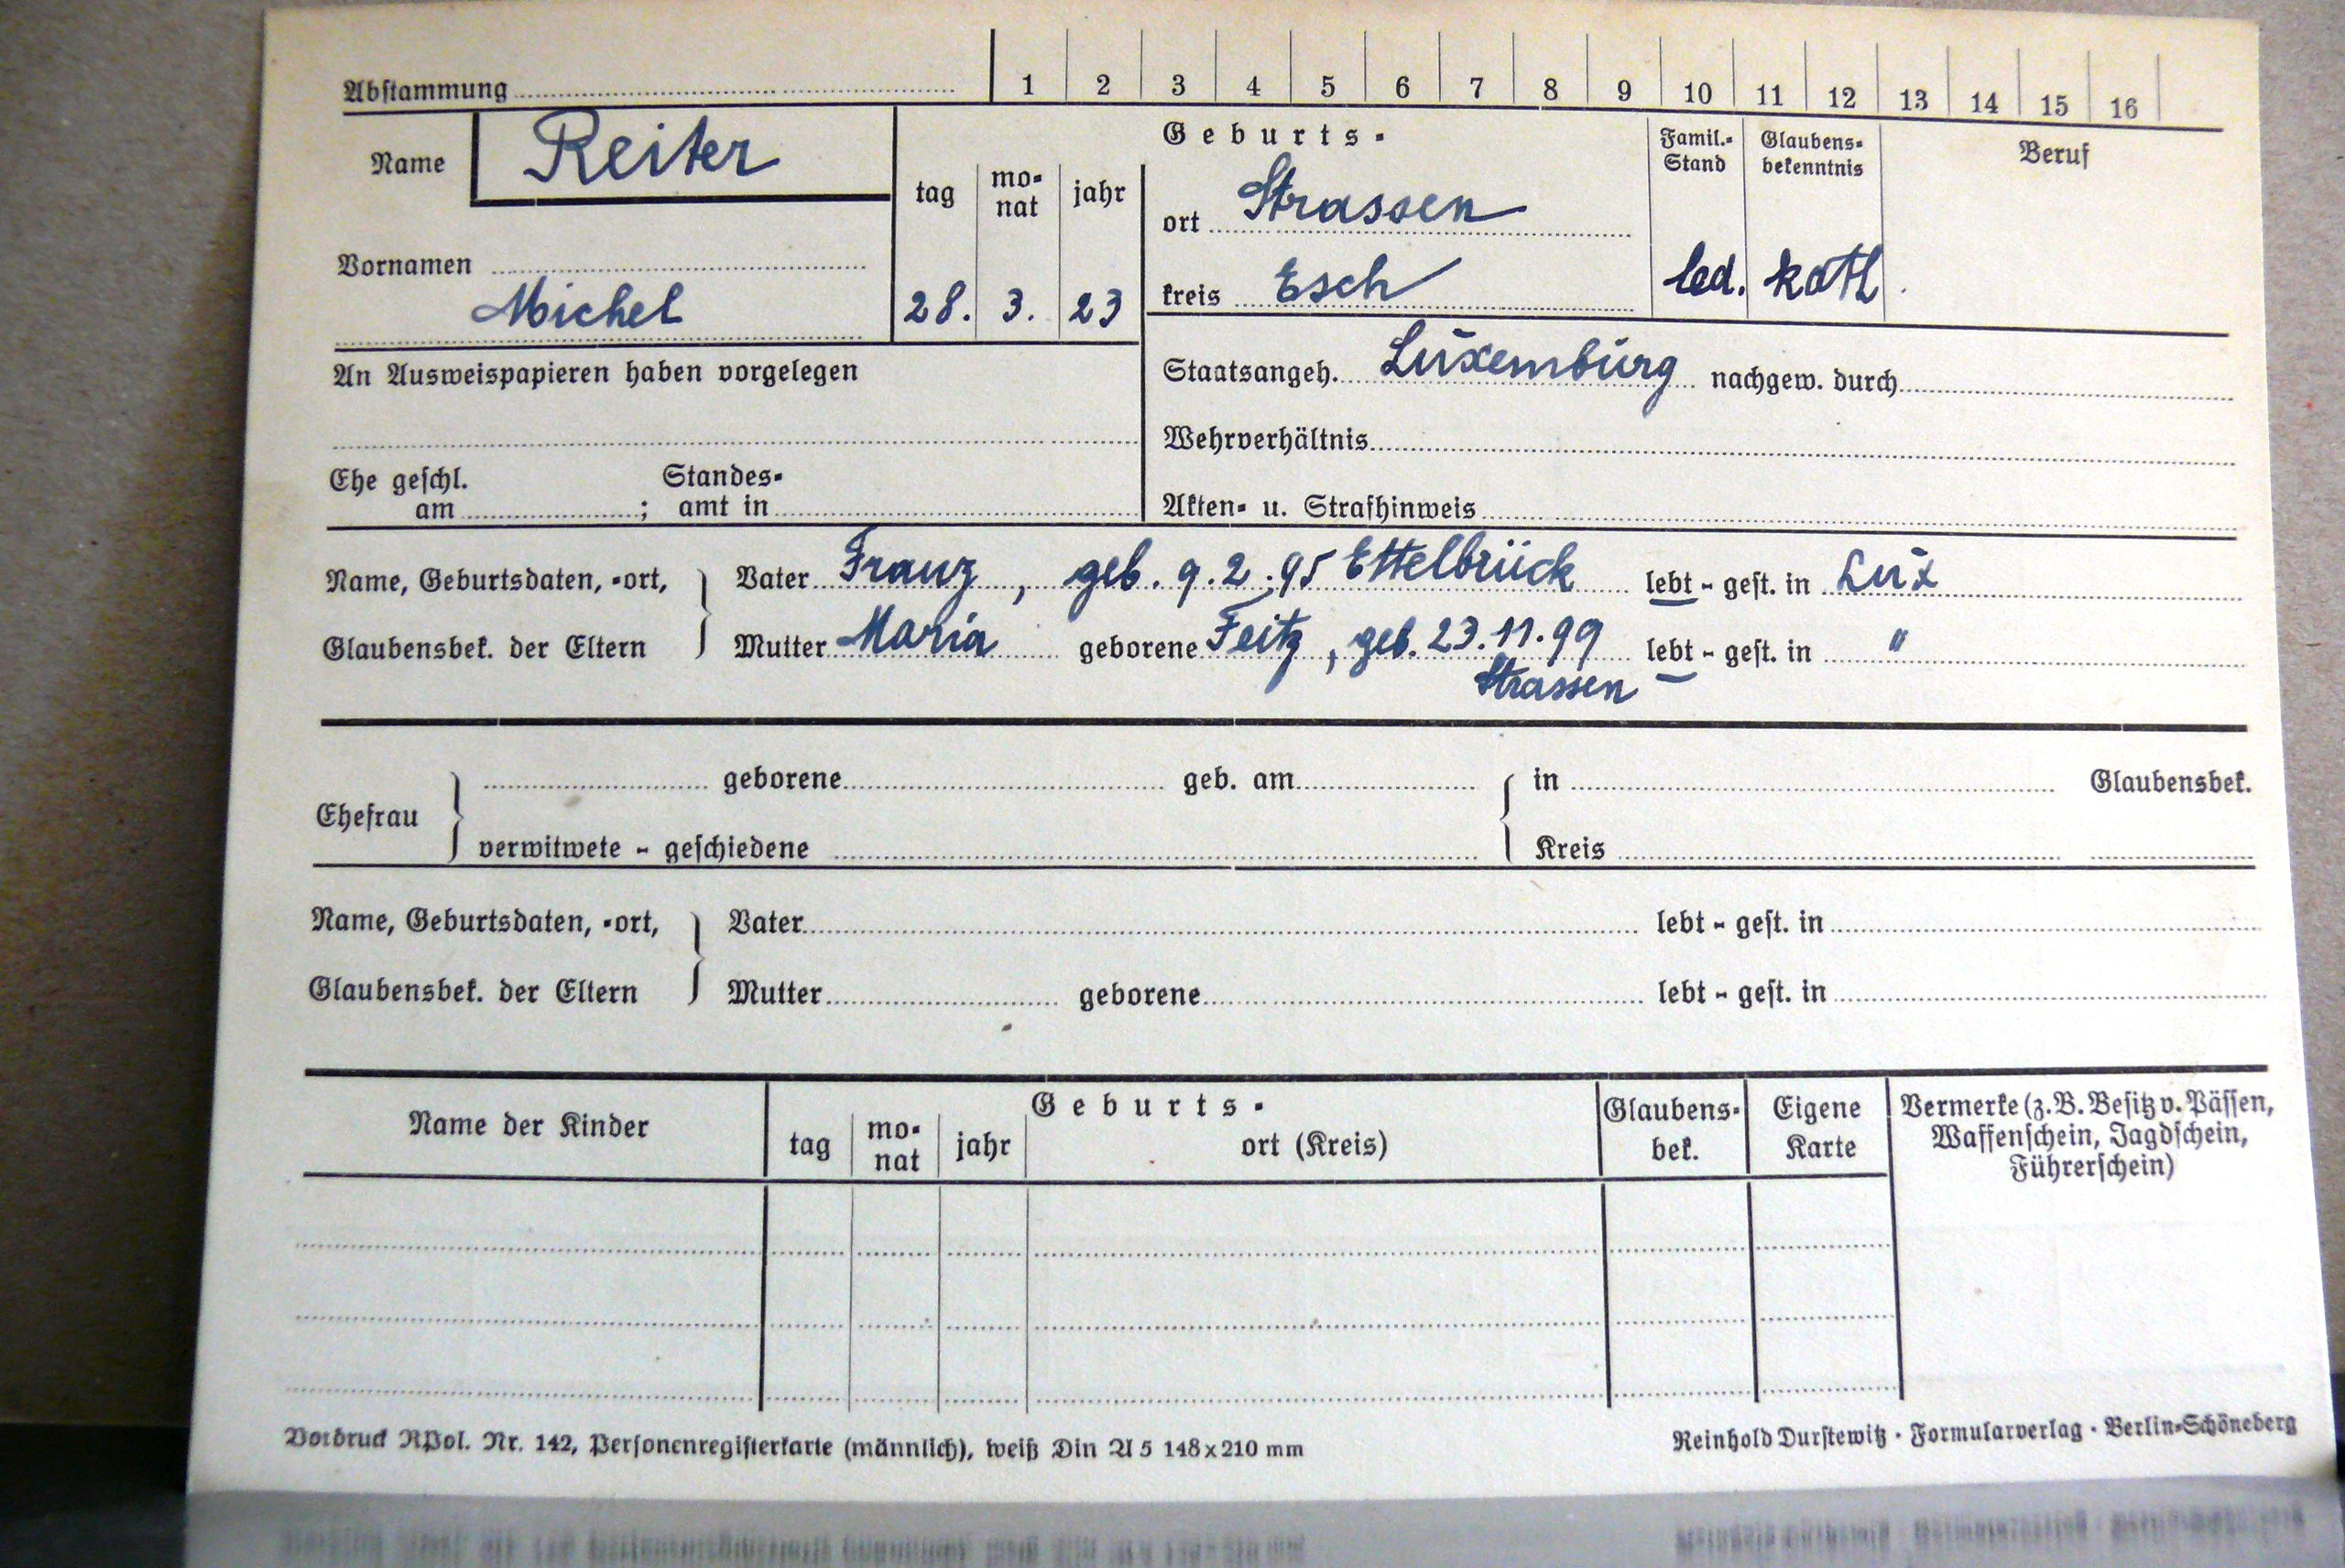 Abstammung 1 2 3 4 5 6 7 8 9 10 11 12 13 14 15 16
Name Reiter
Geburts-
tag monat jahr
ort Strassen
Famil.-Stand
Glaubensbekenntnis
Beruf
Vornamen
Michel 28. 3. 23 kreis Esch led. kath.
An Ausweispapieren haben vorgelegen
Staatsangeh. Luxemburg nachgew. durch
Wehrverhältnis
Ehe geschl. Standes-
am ; amt in
Akten- u. Strafhinweis
Name, Geburtsdaten, -ort, Vater Franz, geb. 9.2.95 Ettelbrück lebt - gest. in Lux
Glaubensbek. der Eltern Mutter Maria geborene Feitz, geb. 23.11.99 lebt - gest. in "
Strassen
geborene geb. am in Glaubensbek.
Ehefrau
verwitwete - geschiedene Kreis
Name, Geburtsdaten, -ort, Vater lebt - gest. in
Glaubensbek. der Eltern Mutter geborene lebt - gest. in
Name der Kinder
Geburts-
tag monat jahr ort (Kreis)
Glaubens-
bek.
Eigene
Karte
Vermerke (z.B. Besitz v. Pässen,
Waffenschein, Jagdschein,
Führerschein)
Vordruck RPol. Nr. 142, Personenregisterkarte (männlich), weiß Din A 5 148x210 mm
Reinhold Durstewitz · Formularverlag · Berlin-Schöneberg